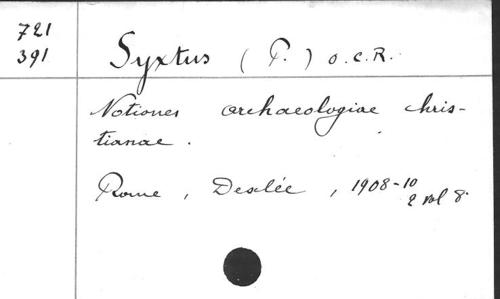 721
391
Syxtus (P.) O.C.R.
Notiones archaeologiae chris-
tianae.
Rome, Desclée, 1908-10
2 vol 8°